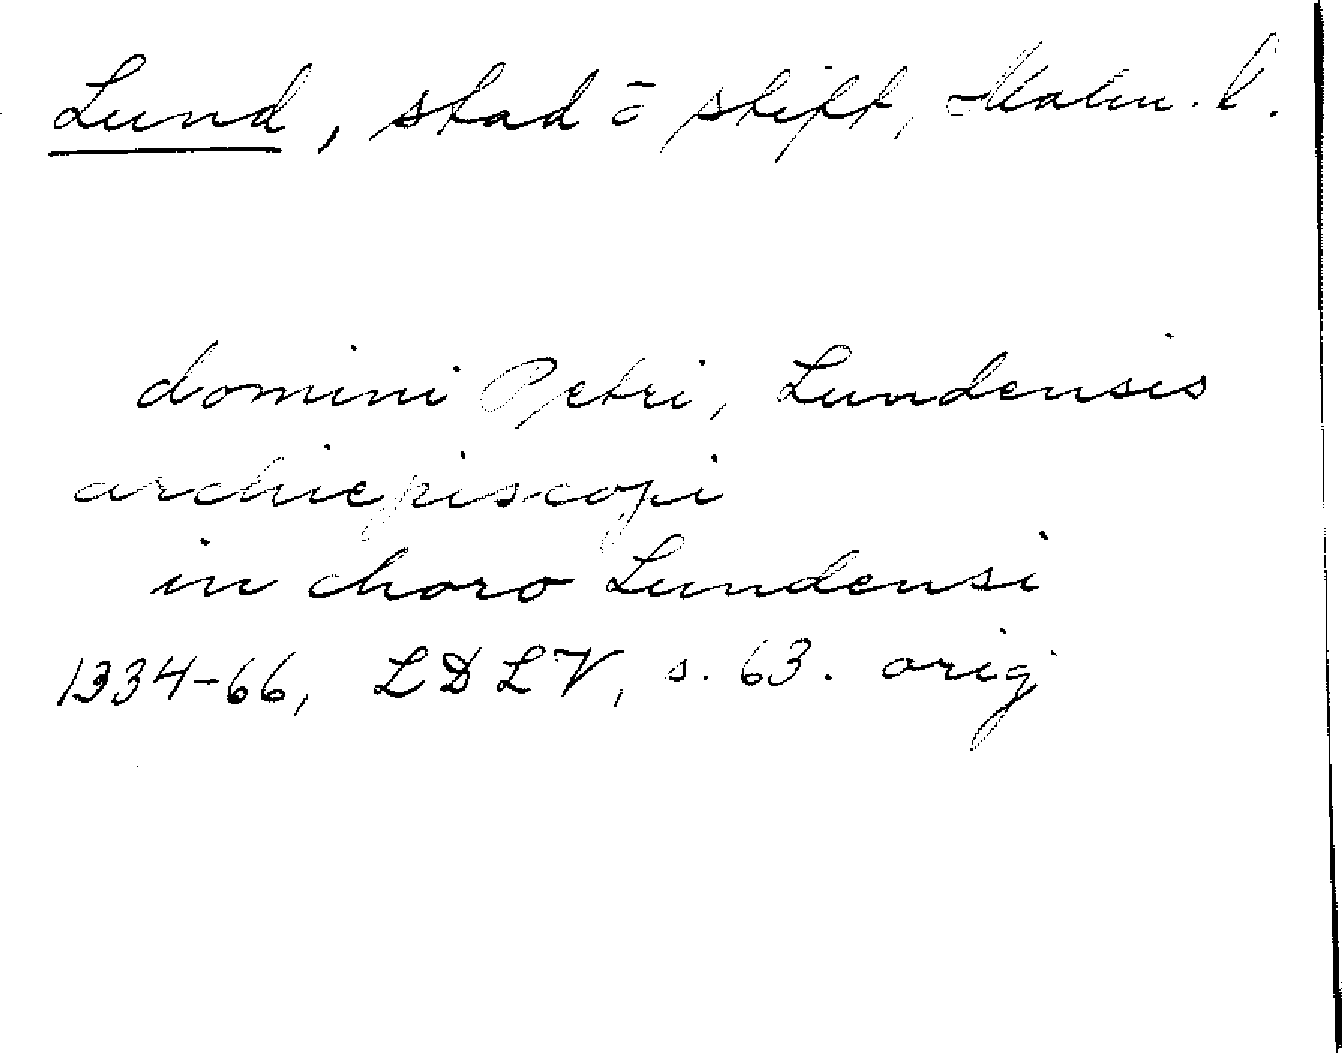 Lund, stad ō stift, Malm. l.
domini Petri, Lundensis
archiepiscopi
in choro Lundensi
1334-66, LDLV, s. 63. orig